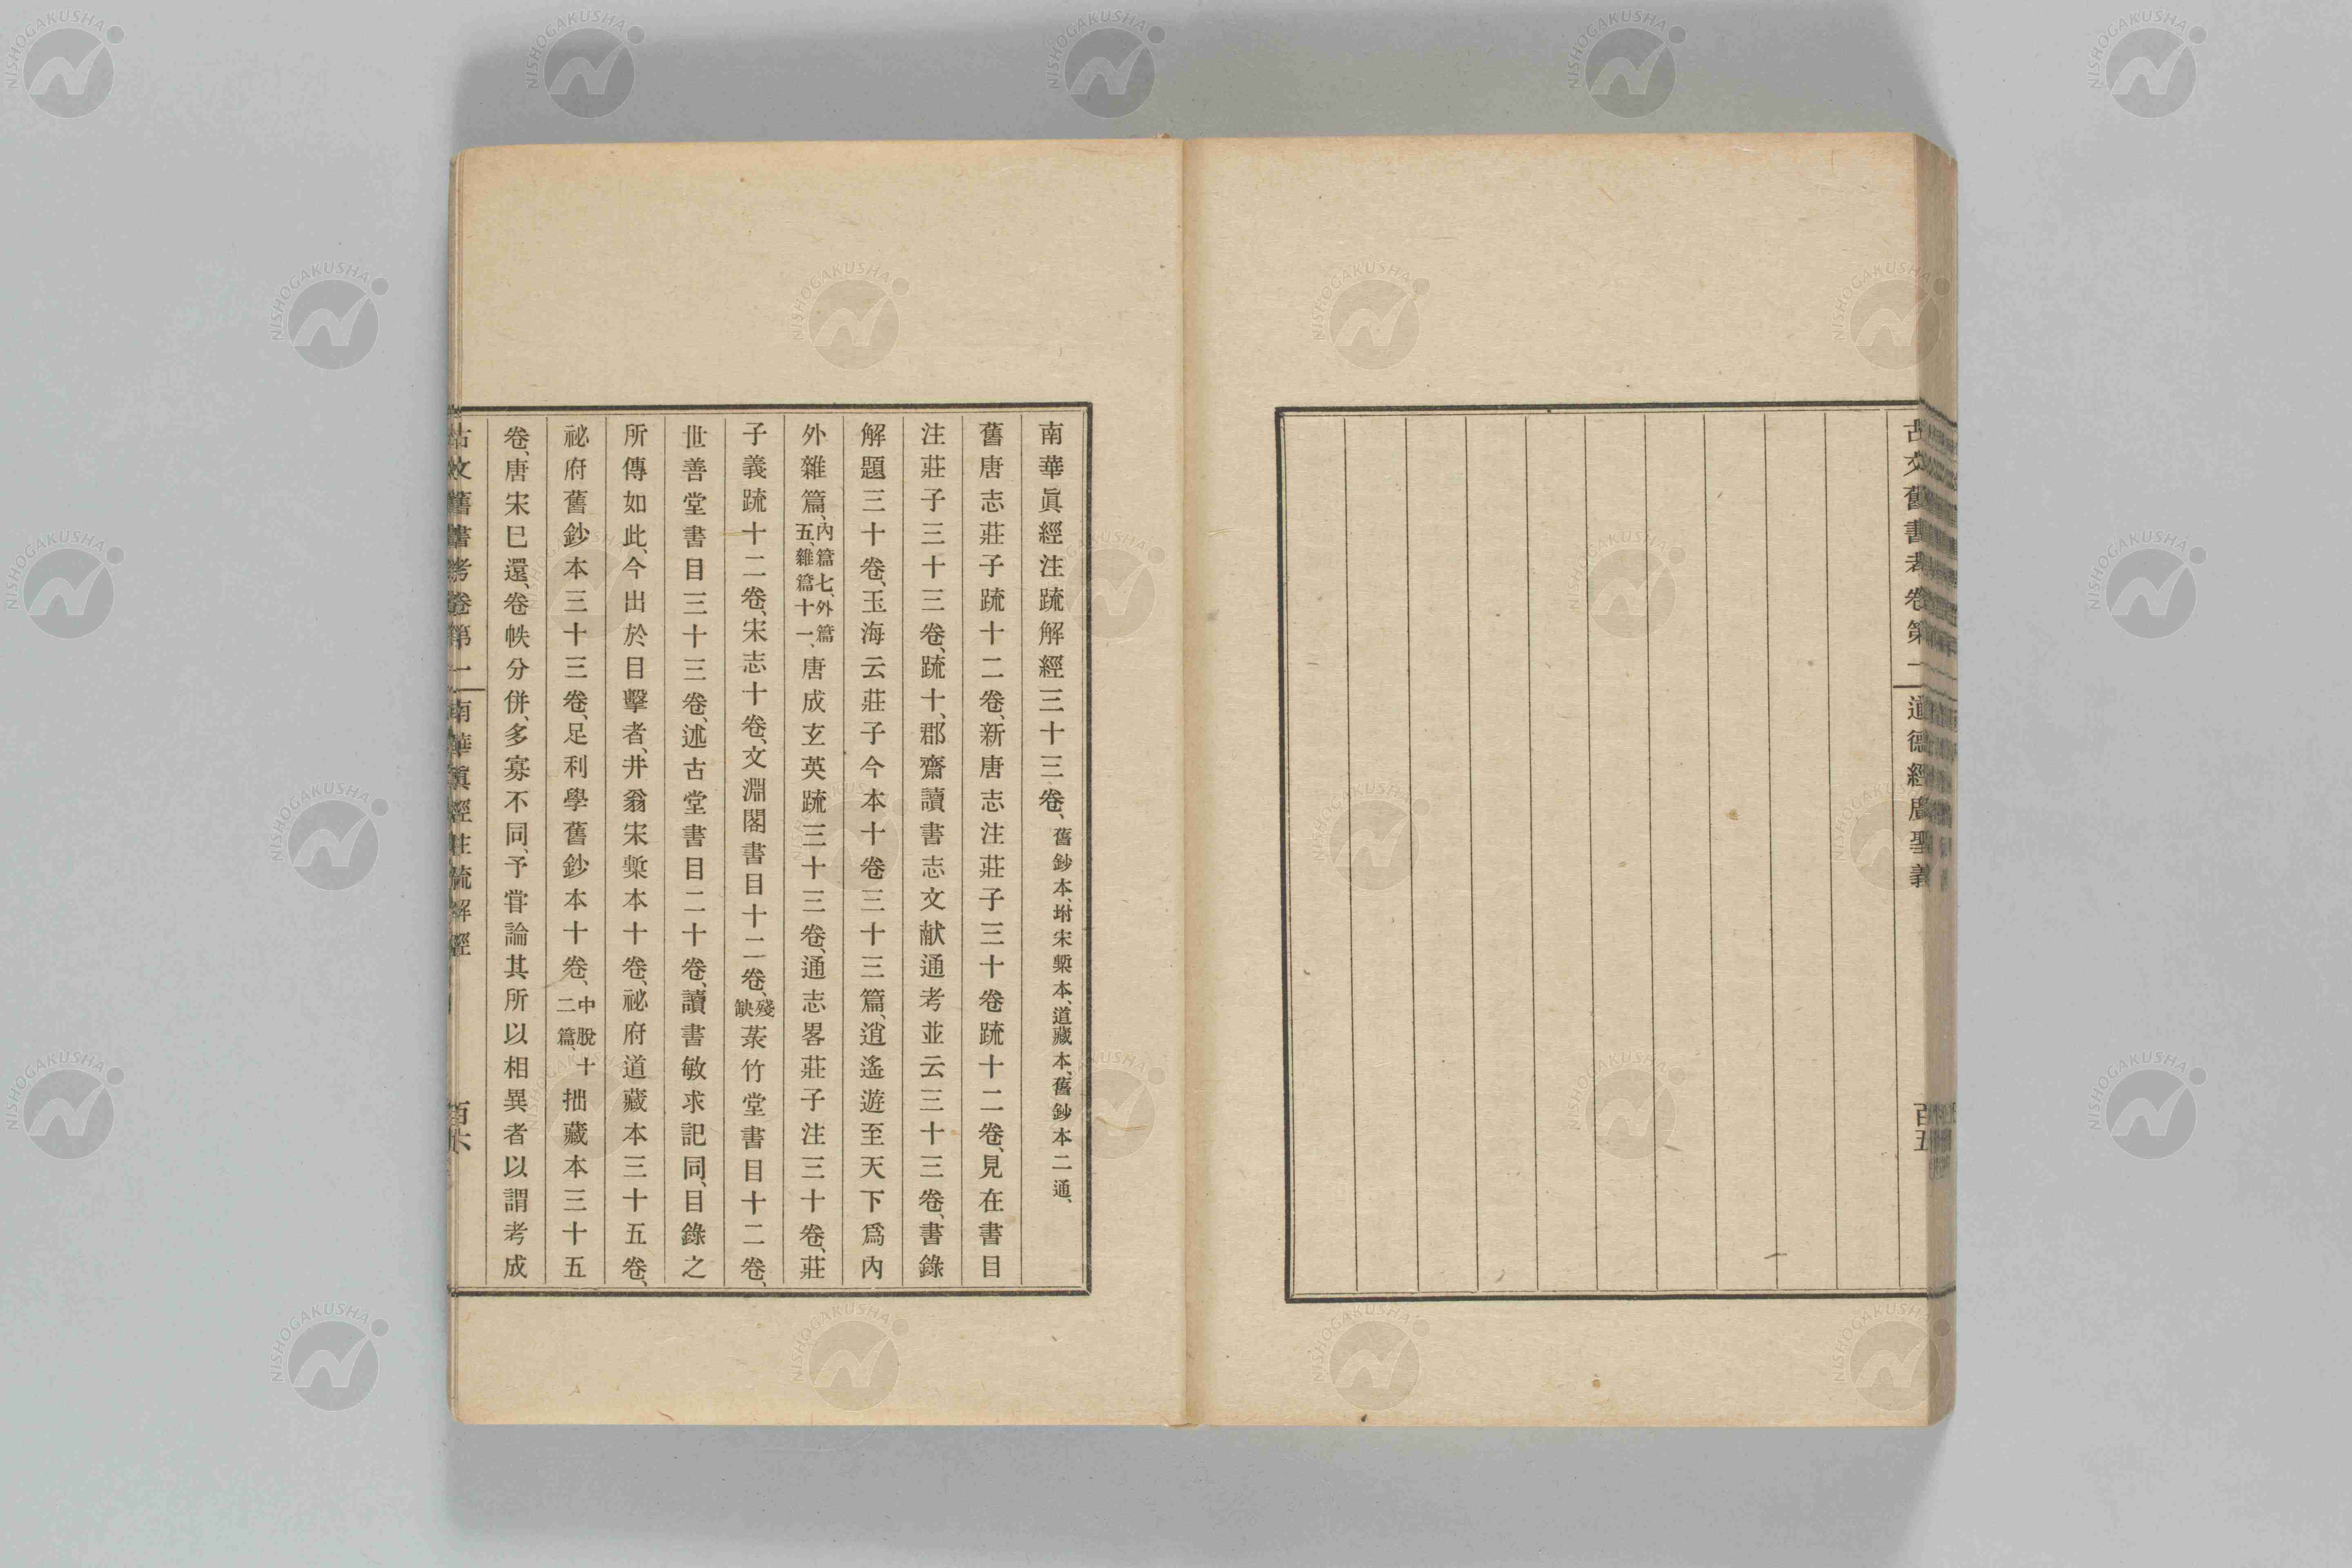 古文舊書考卷第一 道德經廣聖義 百五
南華眞經注䟽解經三十三卷、舊鈔本、坿宋槧本、道藏本、舊鈔本二通、
舊唐志莊子䟽十二卷、新唐志注莊子三十卷䟽十二卷、見在書目
注莊子三十三卷、䟽十、郡齋讀書志文献通考並云三十三卷、書錄
解題三十卷、玉海云莊子今本十卷三十三篇、逍遙遊至天下爲內
外雜篇、內篇七、外篇五、雜篇十一、唐成玄英䟽三十三卷、通志畧莊子注三十卷、莊
子義䟽十二卷、宋志十卷、文淵閣書目十二卷、殘缺菉竹堂書目十二卷、
世善堂書目三十三卷、述古堂書目二十卷、讀書敏求記同、目錄之
所傳如此、今出於目擊者、井翁宋槧本十卷、祕府道藏本三十五卷、
祕府舊鈔本三十三卷、足利學舊鈔本十卷、中脫十二篇、拙藏本三十五
卷、唐宋已還、卷帙分併、多寡不同、予嘗論其所以相異者以謂考成
古文舊書考卷第一 南華眞經注䟽解經 百六
NISHOGAKUSHA